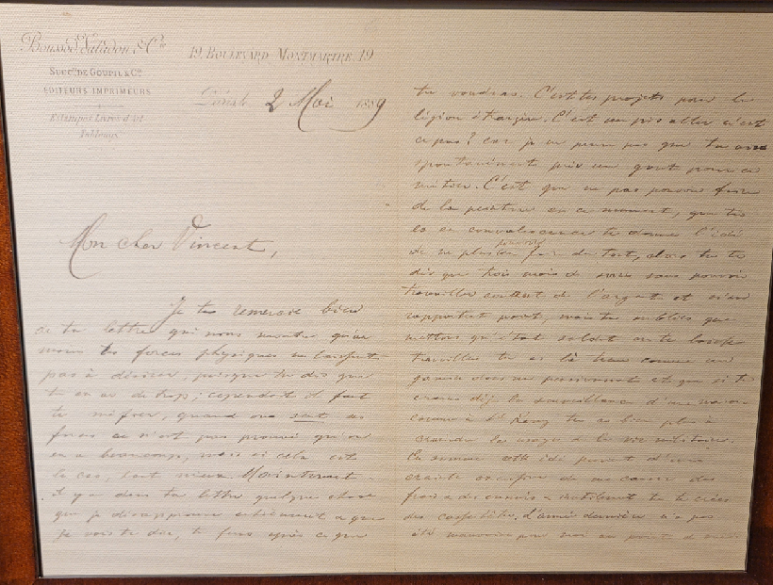 Boussod Valadon & Cie
Succrs de Goupil & Cie
EDITEURS IMPRIMEURS
Estampes Livres d'Art
Tableaux
19, BOULEVARD MONTMARTRE, 19
Paris, 2 Mai 1889
Mon cher Vincent,
Je te remercie bien
de ta lettre qui nous montre qu'au
moins tes forces physiques ne laissent
pas à désirer, puisque tu dis que
tu en as de trop; cependant il faut
te méfier, quand on a sent ses
forces ce n'est pas prouvé qu'on
en a beaucoup, mais si cela est
le cas, tant mieux. Maintenant
il y a dans ta lettre quelque chose
que je désapprouve entièrement & que
je vais te dire, tu feras après ce que
tu voudras. C'est tes projets pour la
légion étrangère. C'est un pis aller n'est
ce pas? car je ne pense pas que tu aies
spontanément pris un goût pour ce
métier. C'est que ne pas pouvoir faire
de la peinture en ce moment, que tu
es en convalescence te donne l'idée
de ne plus pouvoir faire du tout, alors tu te
dis que trois mois de sans pouvoir
travailler coûtent de l'argent et n'en
rapportent point, mais tu oublies que
mettons qu'étant soldat on te laisse
travailler tu es là tenu comme un
que si tu
crains déjà la surveillance d'une maison
comme à St Rémy tu as bien plus à
craindre les usages de la vie militaire.
En somme cette idée provient d'une
crainte de me causer des
frais & des ennuis & tu te crées
des L'année dernière n'a pas
été mauvaise pour moi au point de vue